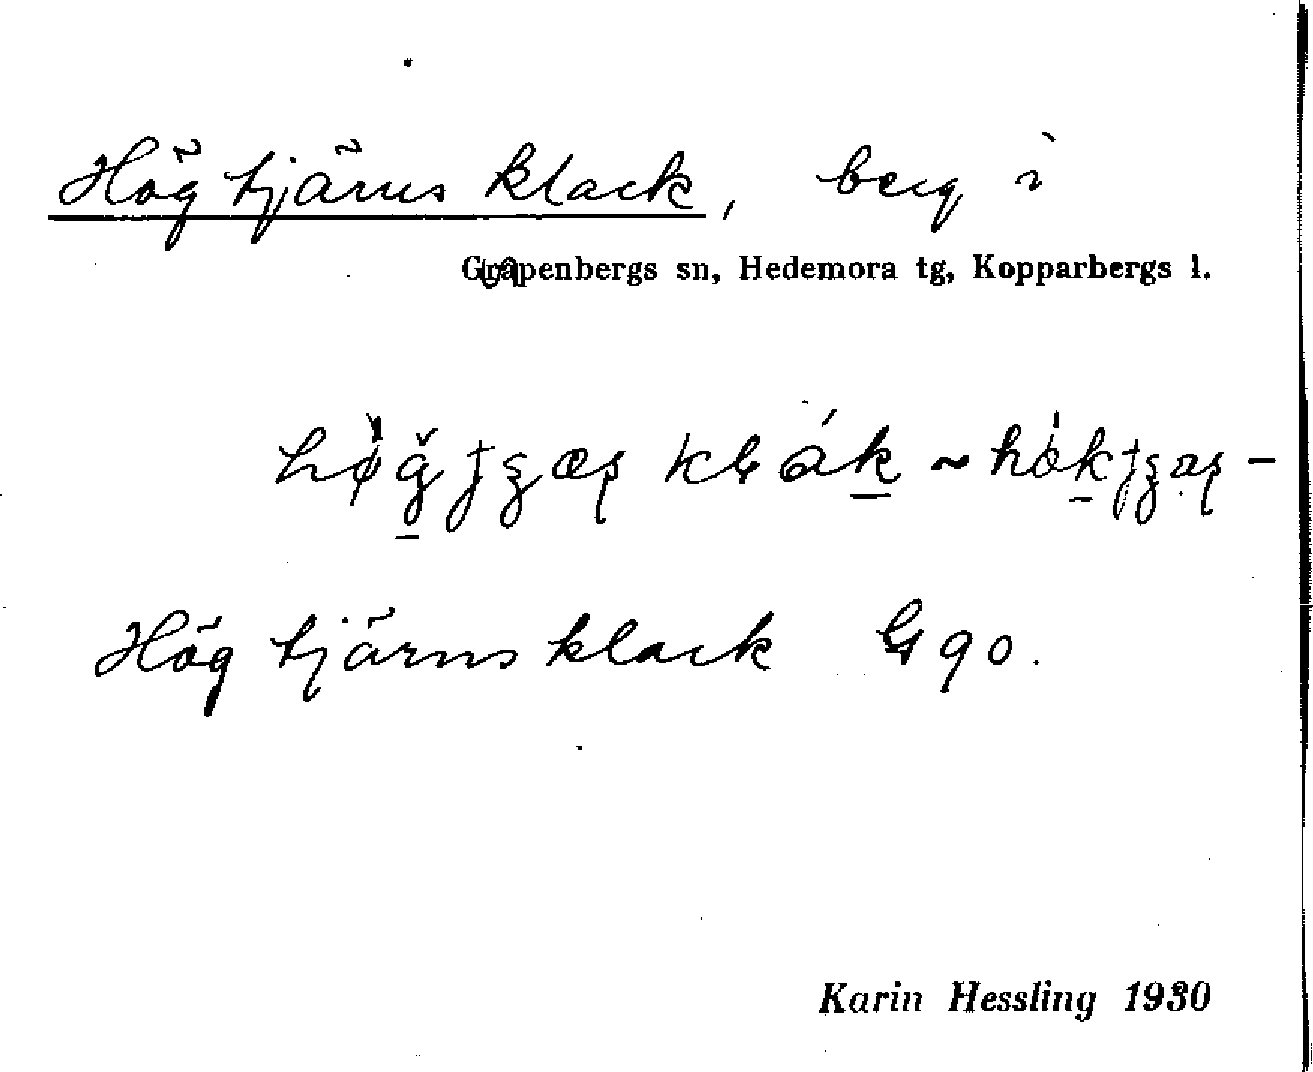 Högtjärnsklack, berg i
Garpenbergs sn, Hedemora tg, Kopparbergs l.
Högtjärnsklack G 90.
Karin Hessling 1930